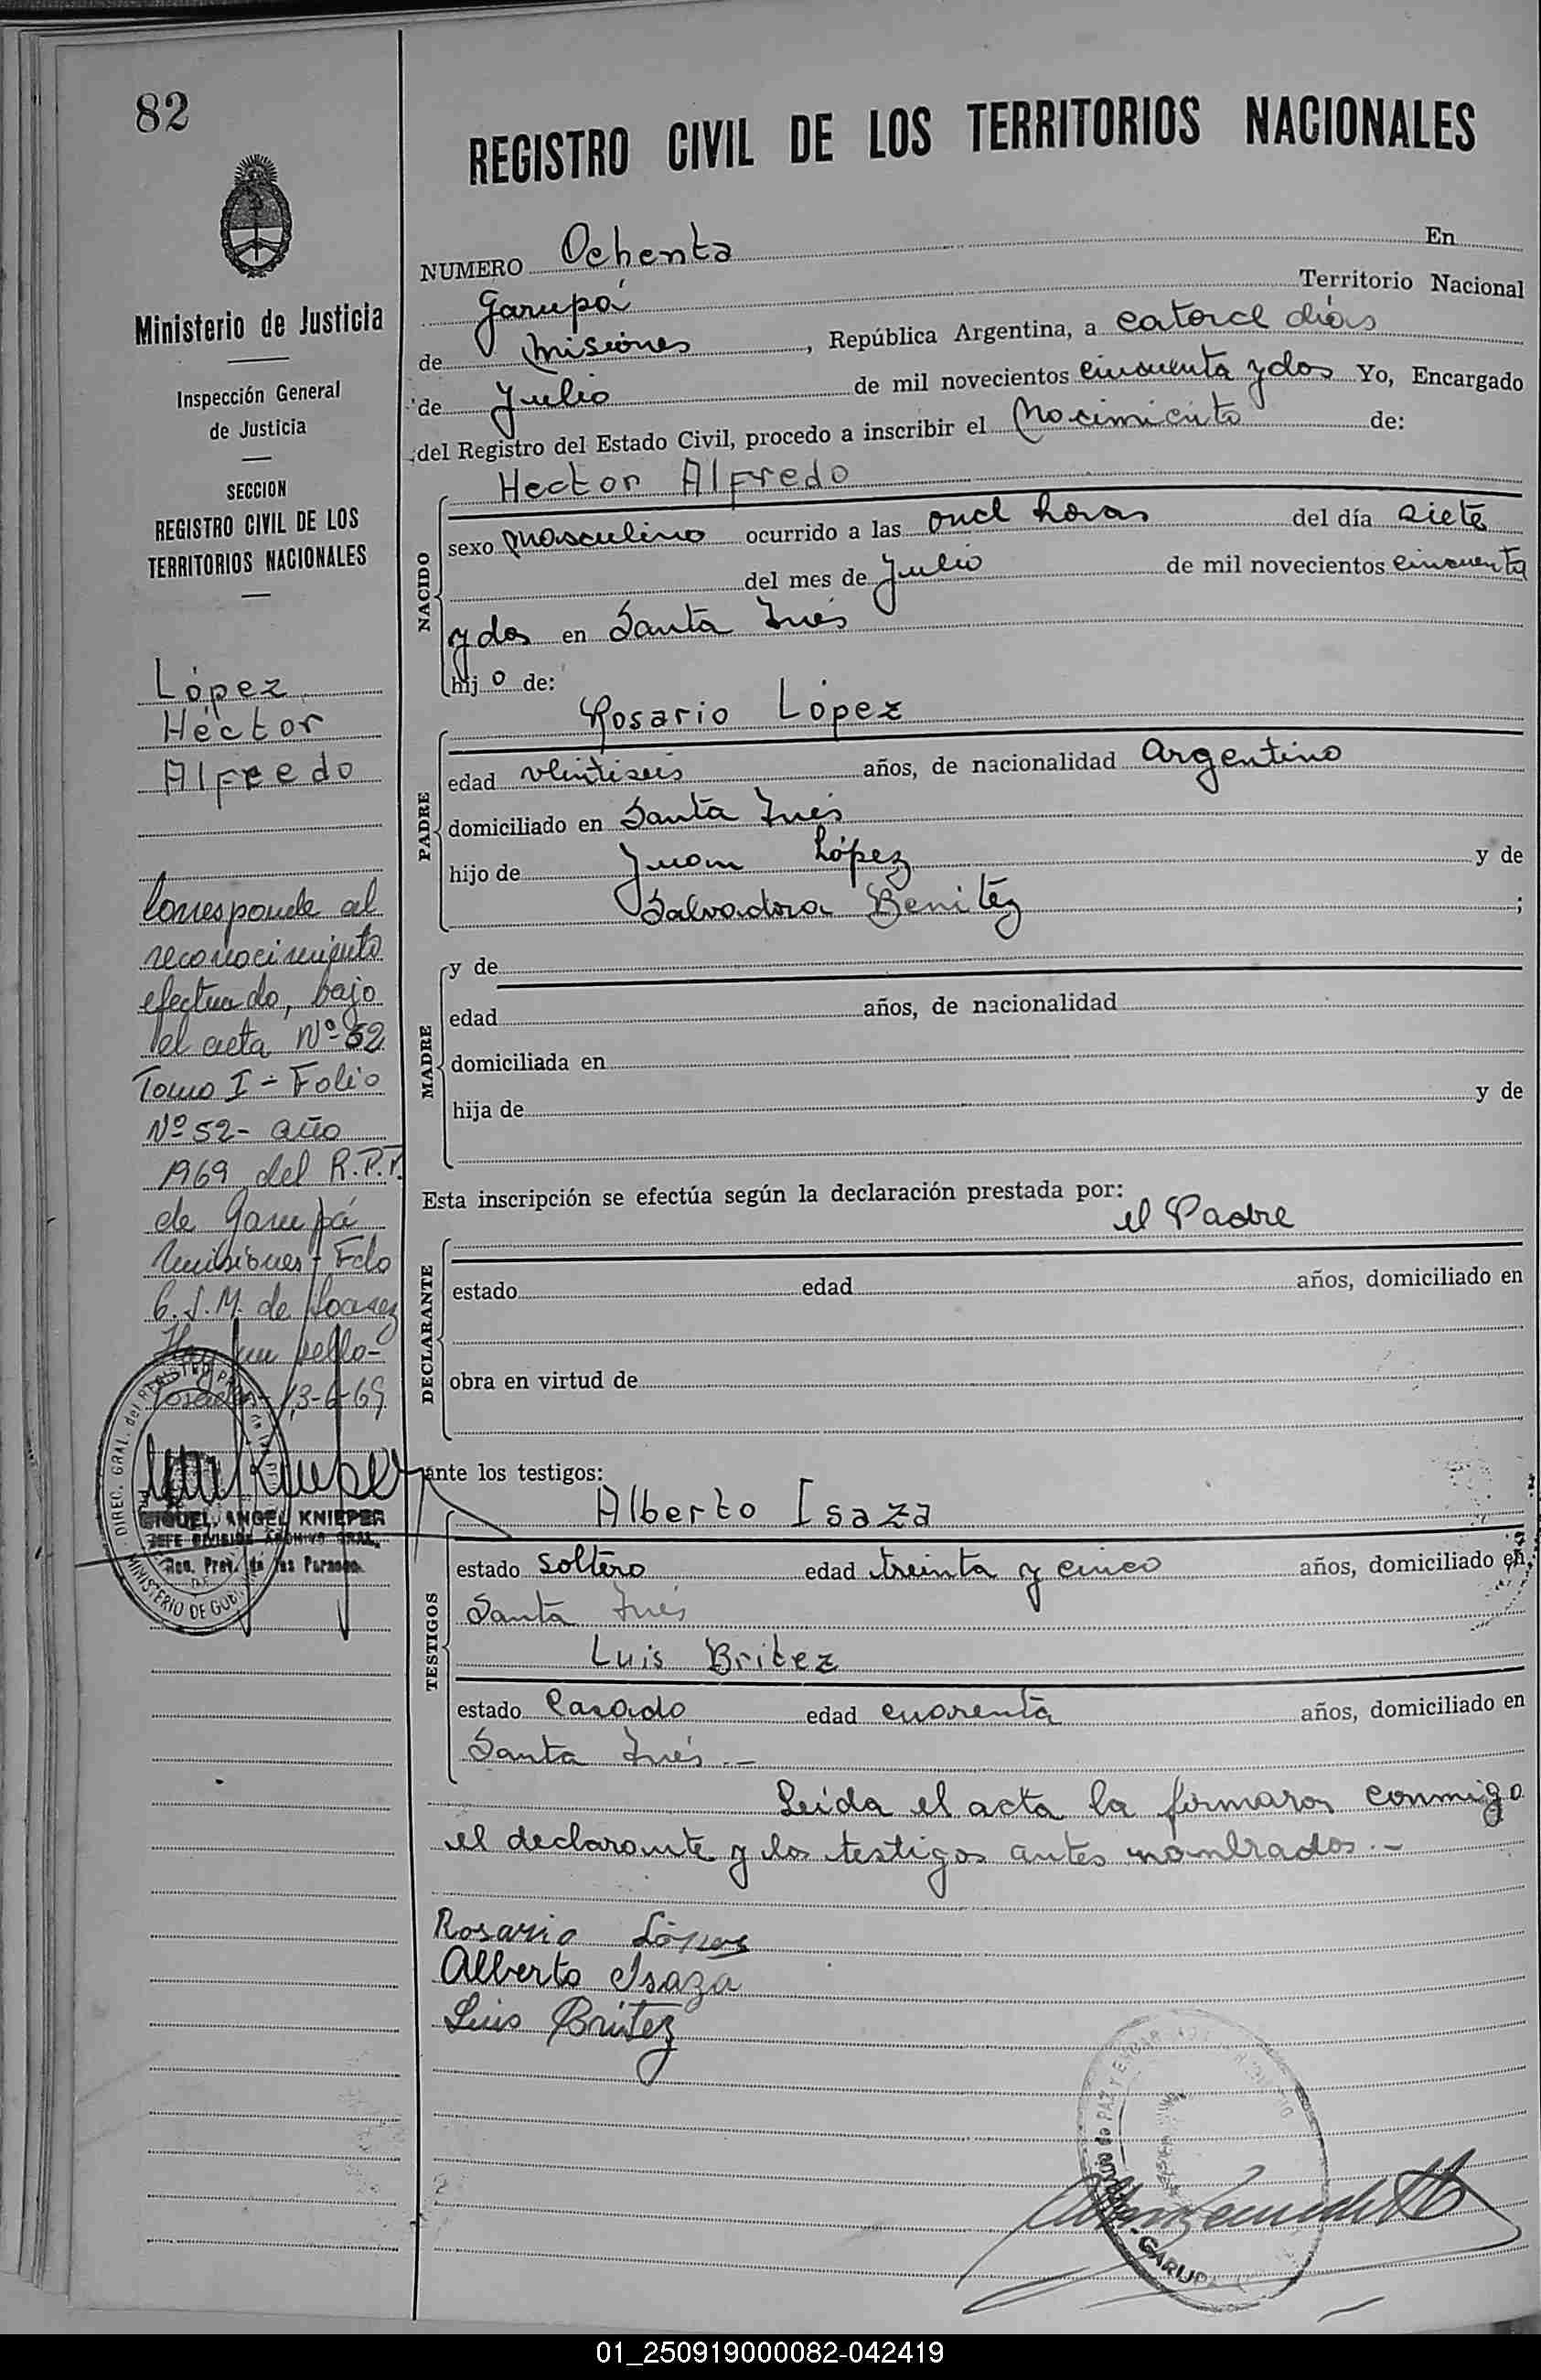 82
Ministerio de Justicia
Inspección General
de Justicia
SECCION
REGISTRO CIVIL DE LOS
TERRITORIOS NACIONALES
López
Héctor
Alfredo
Corresponde al
reconocimiento
efectuado, bajo
el acta Nº 52
Tomo I - Folio
Nº 52 - año
1969 del R.P.P.
de Garupá
Misiones - Fdo
C.S.M. de Soarez
Hay un sello -
Posadas 13-6-69
DIREC. GRAL. del REGISTRO
MINISTERIO DE GOB
MIGUEL ANGEL KNIEPER
JEFE DIVISION ARCHIVO GRAL.
Reg. Prov. de las Personas
REGISTRO CIVIL DE LOS TERRITORIOS NACIONALES
NUMERO Ochenta En
Garupá Territorio Nacional
de Misiones, República Argentina, a catorce días
de Julio de mil novecientos cincuenta y dos Yo, Encargado
del Registro del Estado Civil, procedo a inscribir el Nacimiento de:
NACIDO
Hector Alfredo
sexo masculino ocurrido a las once horas del día siete
del mes de Julio de mil novecientos cincuenta
y dos en Santa Inés
hijo de:
PADRE
Rosario López
edad veintiseis años, de nacionalidad Argentino
domiciliado en Santa Inés
hijo de Juan López y de
Salvadora Benitéz ;
MADRE
y de
edad años, de nacionalidad
domiciliada en
hija de y de
Esta inscripción se efectúa según la declaración prestada por:
el Padre
DECLARANTE
estado edad años, domiciliado en
obra en virtud de
ante los testigos:
TESTIGOS
Alberto Isaza
estado soltero edad treinta y cinco años, domiciliado en
Santa Inés
Luis Britez
estado Casado edad cuarenta años, domiciliado en
Santa Inés.-
Leida el acta la firmaron conmigo
el declarante y los testigos antes nombrados.-
Rosario López
Alberto Isaza
Luis Britez
GARUPA
01_250919000082-042419